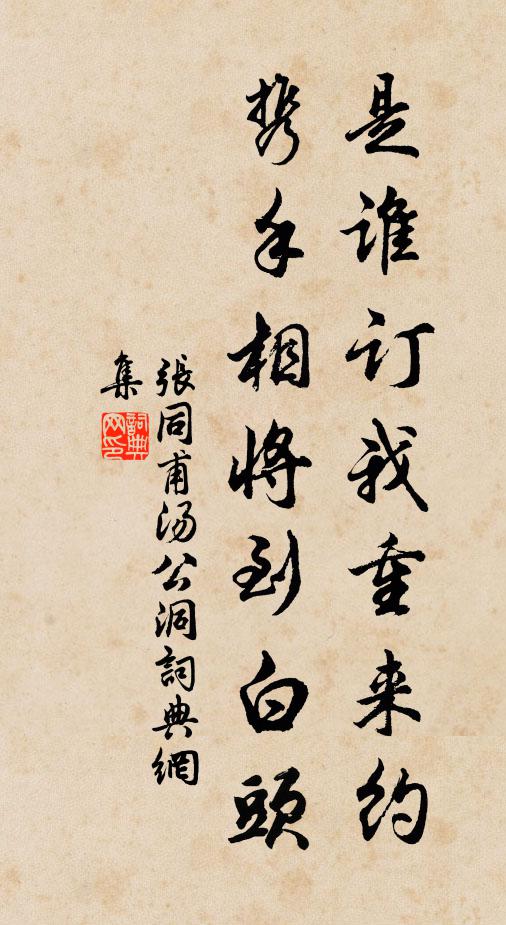 是谁訂我重来约
携手相将到白頭
張同甫汤公洞詞典網
集
詞典网印